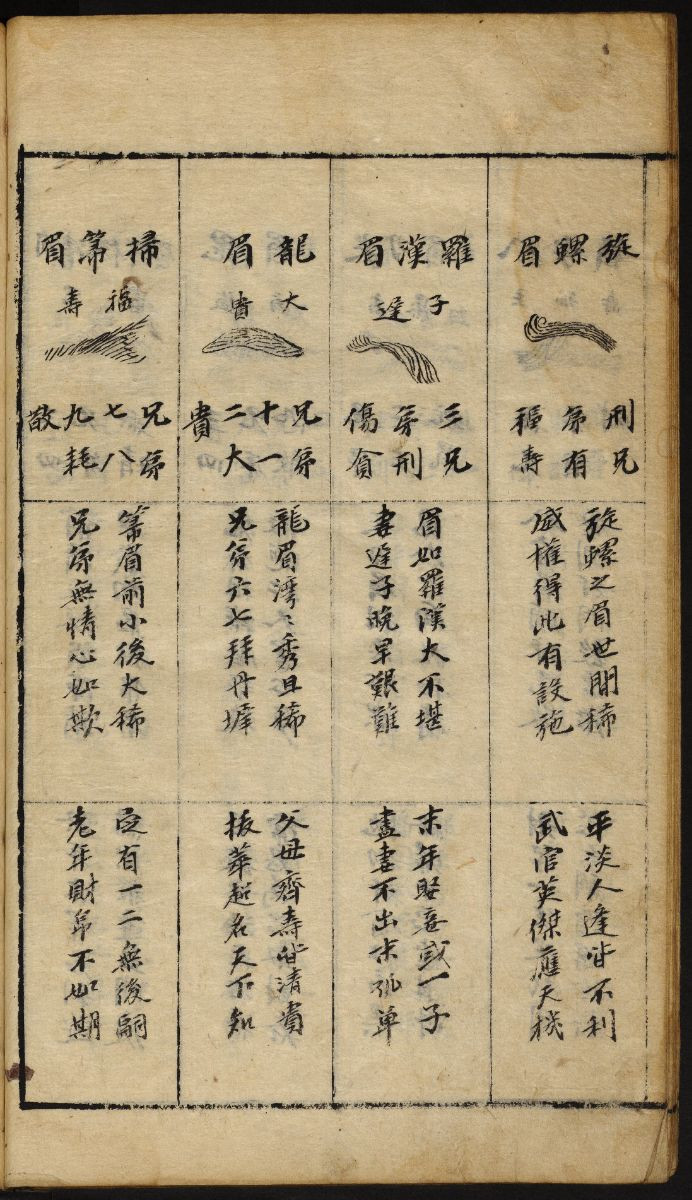 旋螺眉
刑兄
弟有
福壽
旋螺之眉世間稀
威權得此有設施
平淡人逢皆不利
武官英傑應天機
羅漢眉
子遲
三兄
弟刑
傷貪
眉如羅漢大不堪
妻遲子晚早艱難
末年娶妾或一子
盡妻不出末孤單
龍眉
大貴
兄弟
十一
二大
貴
龍眉灣〻秀且稀
兄弟六七拜丹墀
父母齊壽皆清貴
拔萃超名天下知
掃箒眉
福壽
兄弟
七八
九耗
散
箒眉前小後大稀
兄弟無情心如欺
定有一二無後嗣
老年財帛不如期